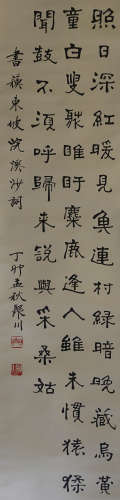 照日深紅暖見魚連村綠暗晚藏烏黃
童白叟聚睢盱麋鹿逢人雖未慣猿猱
聞鼓不須呼歸來說與采桑姑
書蘇東坡浣溪沙詞
丁卯孟秋聚川